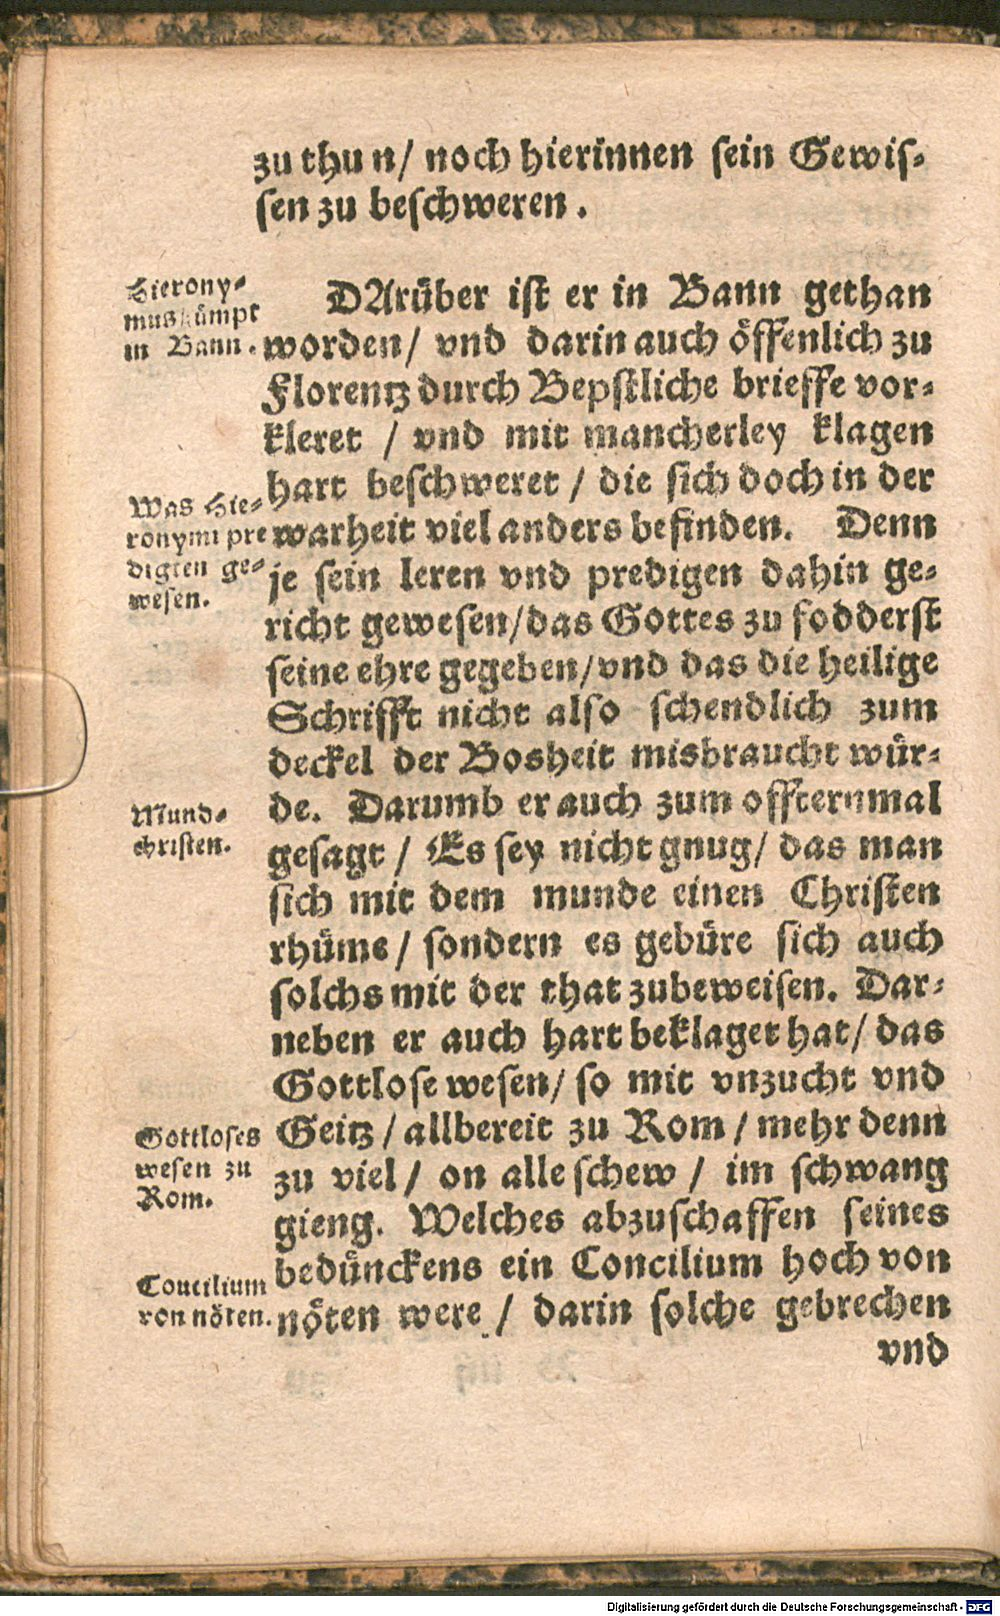 zu thun/ noch hierinnen sein Gewis-
sen zu beschweren.
Hierony-
mus kümpt
in Bann.
DArüber ist er in Bann gethan
worden/ vnd darin auch öffenlich zu
Florentz durch Bepstliche brieffe vor-
kleret / vnd mit mancherley klagen
hart beschweret / die sich doch in der
warheit viel anders befinden. Denn
Was Hie-
ronymi pre
digten ge-
wesen.
je sein leren vnd predigen dahin ge-
richt gewesen/das Gottes zu fodderst
seine ehre gegeben/vnd das die heilige
Schrifft nicht also schendlich zum
deckel der Bosheit misbraucht wür-
de. Darumb er auch zum offternmal
Mund-
christen.
gesagt / Es sey nicht gnug/ das man
sich mit dem munde einen Christen
rhüme/ sondern es gebüre sich auch
solchs mit der that zubeweisen. Dar-
neben er auch hart beklaget hat/ das
Gottlose wesen/ so mit vnzucht vnd
Geitz / allbereit zu Rom / mehr denn
Gottloses
wesen zu
Rom.
zu viel/ on alle schew / im schwang
gieng. Welches abzuschaffen seines
bedünckens ein Concilium hoch von
Concilium
von nöten.
nöten were / darin solche gebrechen
vnd
Digitalisierung gefördert durch die Deutsche Forschungsgemeinschaft - DFG